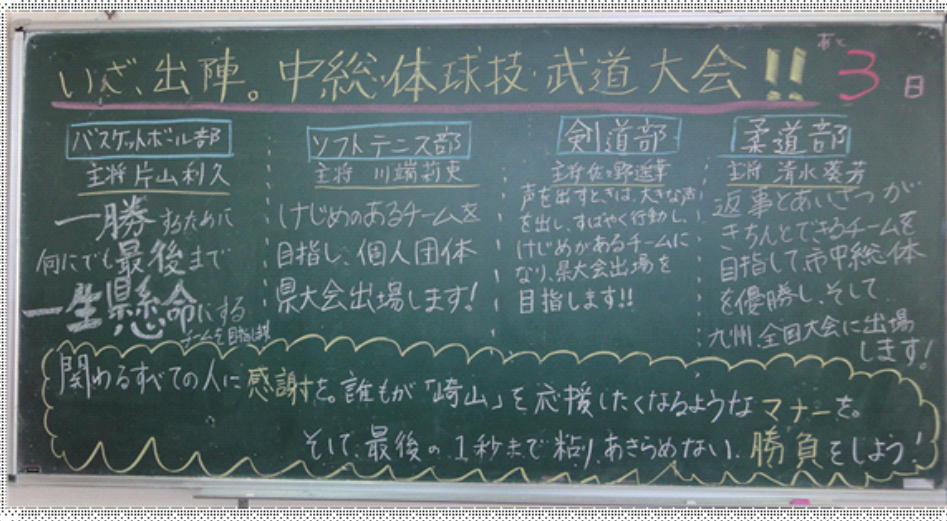 いざ、出陣。中総体球技・武道大会!! あと3日
バスケットボール部
主将 片山利久
一勝するために
何にでも最後まで
一生懸命にする
チームを目指します
ソフトテニス部
主将 川端莉吏
けじめのあるチームを
目指し、個人団体
県大会出場します!
剣道部
主将 佐々野遥華
声を出すときは、大きな声
を出し、すばやく行動し、
けじめがあるチームに
なり、県大会出場を
目指します!!
柔道部
主将 清水葵芳
返事とあいさつが
きちんとできるチームを
目指して、市中総体
を優勝し、そして
九州、全国大会に出場
します!
関わるすべての人に感謝を。誰もが「崎山」を応援したくなるようなマナーを。
そして、最後の1秒まで粘り、あきらめない、勝負をしよう!